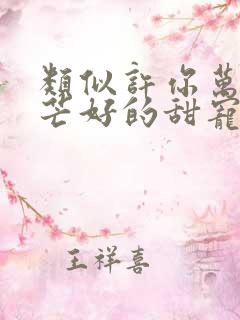 類似許你萬
芒好的甜寵
王祥喜